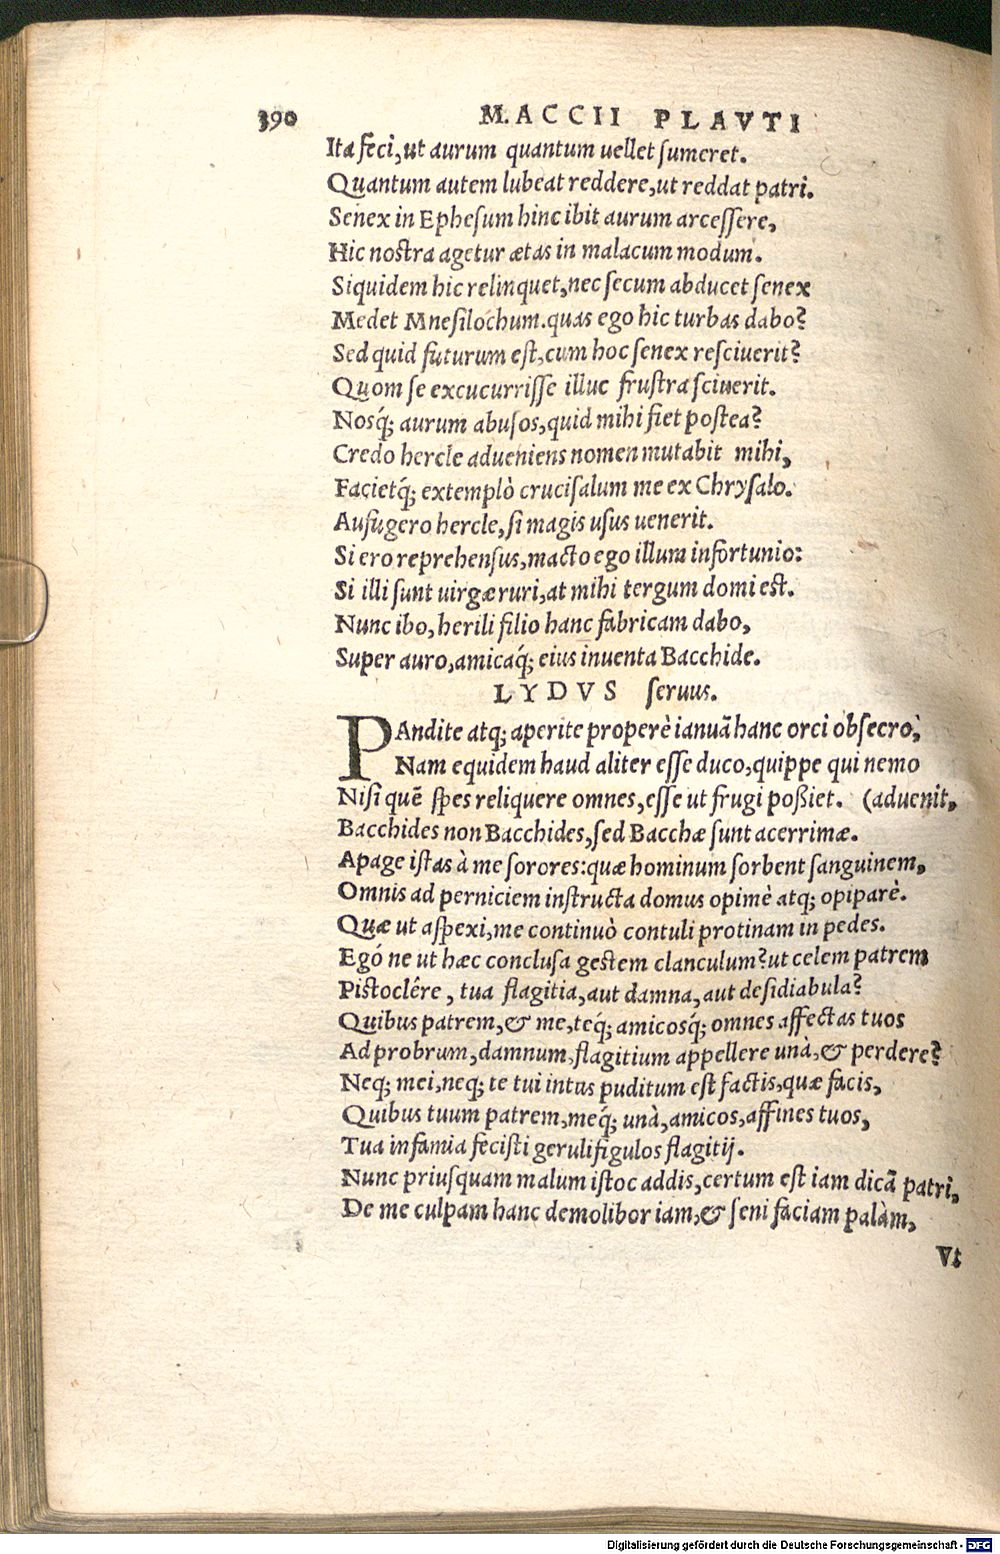 390 M. ACCII PLAVTI
Ita feci, ut aurum quantum uellet sumeret.
Quantum autem lubeat reddere, ut reddat patri.
Senex in Ephesum hinc ibit aurum arcessere,
Hic nostra agetur ætas in malacum modum.
Siquidem hic relinquet, nec secum abducet senex
Medet Mnesilochum. quas ego hic turbas dabo?
Sed quid futurum est, cum hoc senex resciuerit?
Quom se excucurrisse illuc frustra sciuerit.
Nosq́; aurum abusos, quid mihi fiet postea?
Credo hercle adueniens nomen mutabit mihi,
Facietq́; extemplò crucisalum me ex Chrysalo.
Aufugero hercle, si magis usus uenerit.
Si ero reprehensus, macto ego illum infortunio:
Si illi sunt uirgæ ruri, at mihi tergum domi est.
Nunc ibo, herili filio hanc fabricam dabo,
Super auro, amicaq́; eius inuenta Bacchide.
LYDVS seruus.
PAndite atq; aperite properè ianuã hanc orci obsecro,
Nam equidem haud aliter esse duco, quippe qui nemo
Nisi quẽ spes reliquere omnes, esse ut frugi poßiet. (aduenit,
Bacchides non Bacchides, sed Bacchæ sunt acerrimæ.
Apage istas à me sorores: quæ hominum sorbent sanguinem,
Omnis ad perniciem instructa domus opimè atq; opiparè.
Quæ ut aspexi, me continuò contuli protinam in pedes.
Egó ne ut hæc conclusa gestem clanculum? ut celem patrem
Pistoclêre, tua flagitia, aut damna, aut desidiabula?
Quibus patrem, & me, teq́; amicosq́; omnes affectas tuos
Ad probrum, damnum, flagitium appellere unà, & perdere?
Neq; mei, neq; te tui intus puditum est factis, quæ facis,
Quibus tuum patrem, meq́; unà, amicos, affines tuos,
Tua infamia fecisti gerulifigulos flagitij.
Nunc priusquam malum istoc addis, certum est iam dicã patri,
De me culpam hanc demolibor iam, & seni faciam palàm,
Vt
Digitalisierung gefördert durch die Deutsche Forschungsgemeinschaft - DFG